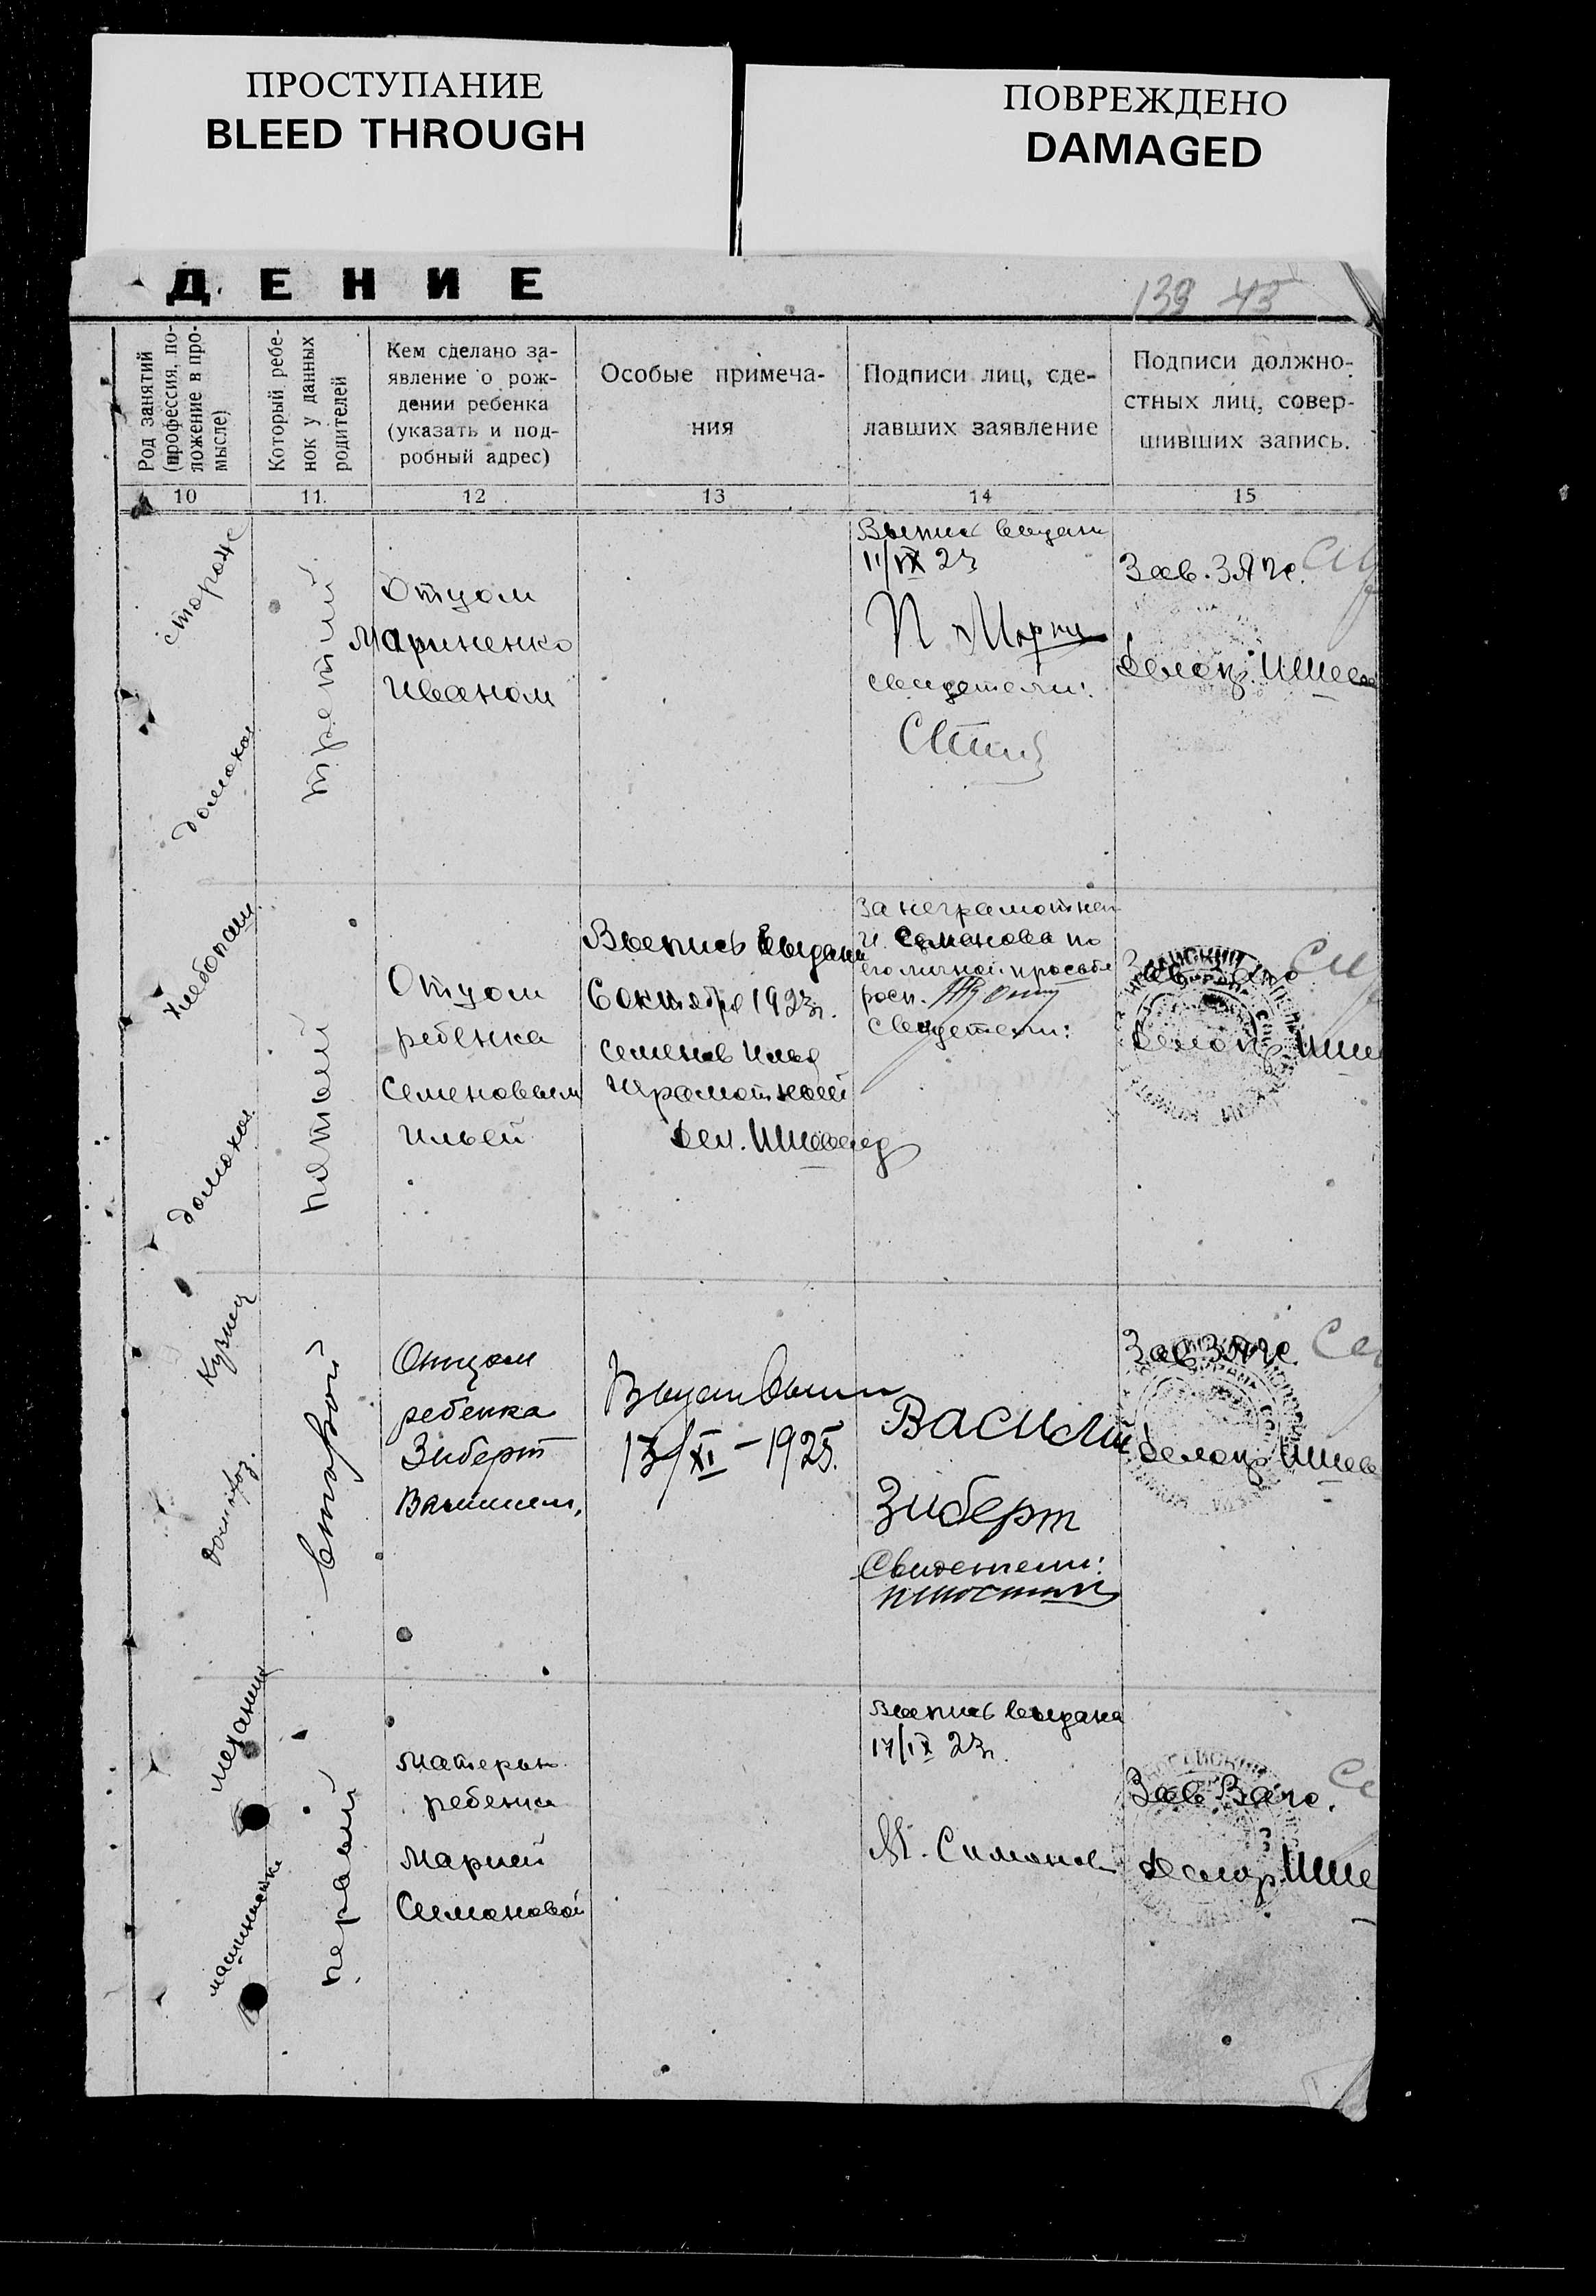 ПРОСТУПАНИЕ
BLEED THROUGH
ПОВРЕЖДЕНО
DAMAGED
ДЕНИЕ
139 45
Род занятий
(профессия, по-
ложение в про-
мысле)
Который ребе-
нок у данных
родителей
Кем сделано за-
явление о рож-
дении ребенка
(указать и под-
робный адрес)
Особые примеча-
ния
Подписи лиц, сде-
лавших заявление
Подписи должно-
стных лиц, совер-
шивших запись.
10
11.
12
13
14
15
сторож
домохоз
третий
Отцом
Мариненко
Иваном
Выпись выдана
11/IX 23
свидетели:
Зав. ЗАГС.
Делопр.
хлебопаш.
домохоз.
пятый
Отцом
ребенка
Семеновым
Ильей
Выпись выдана
6 октября 1923г.
Семенов Илья
Дел.
За неграмотного
И. Семенова по
его личной просьбе
росп.
свидетели:
Кузнец
домохоз.
второй
Отцом
ребенка
Зиберт
13/XI-1925.
Василий
Зиберт
Свидетели:
Зав ЗАГС.
Делопр
механик
машинистка
первый
матерью
ребенка
Марией
Симоновой
Выпись выдана
17/IX 23г.
М. Симонов
Зав Загс.
Делопр.